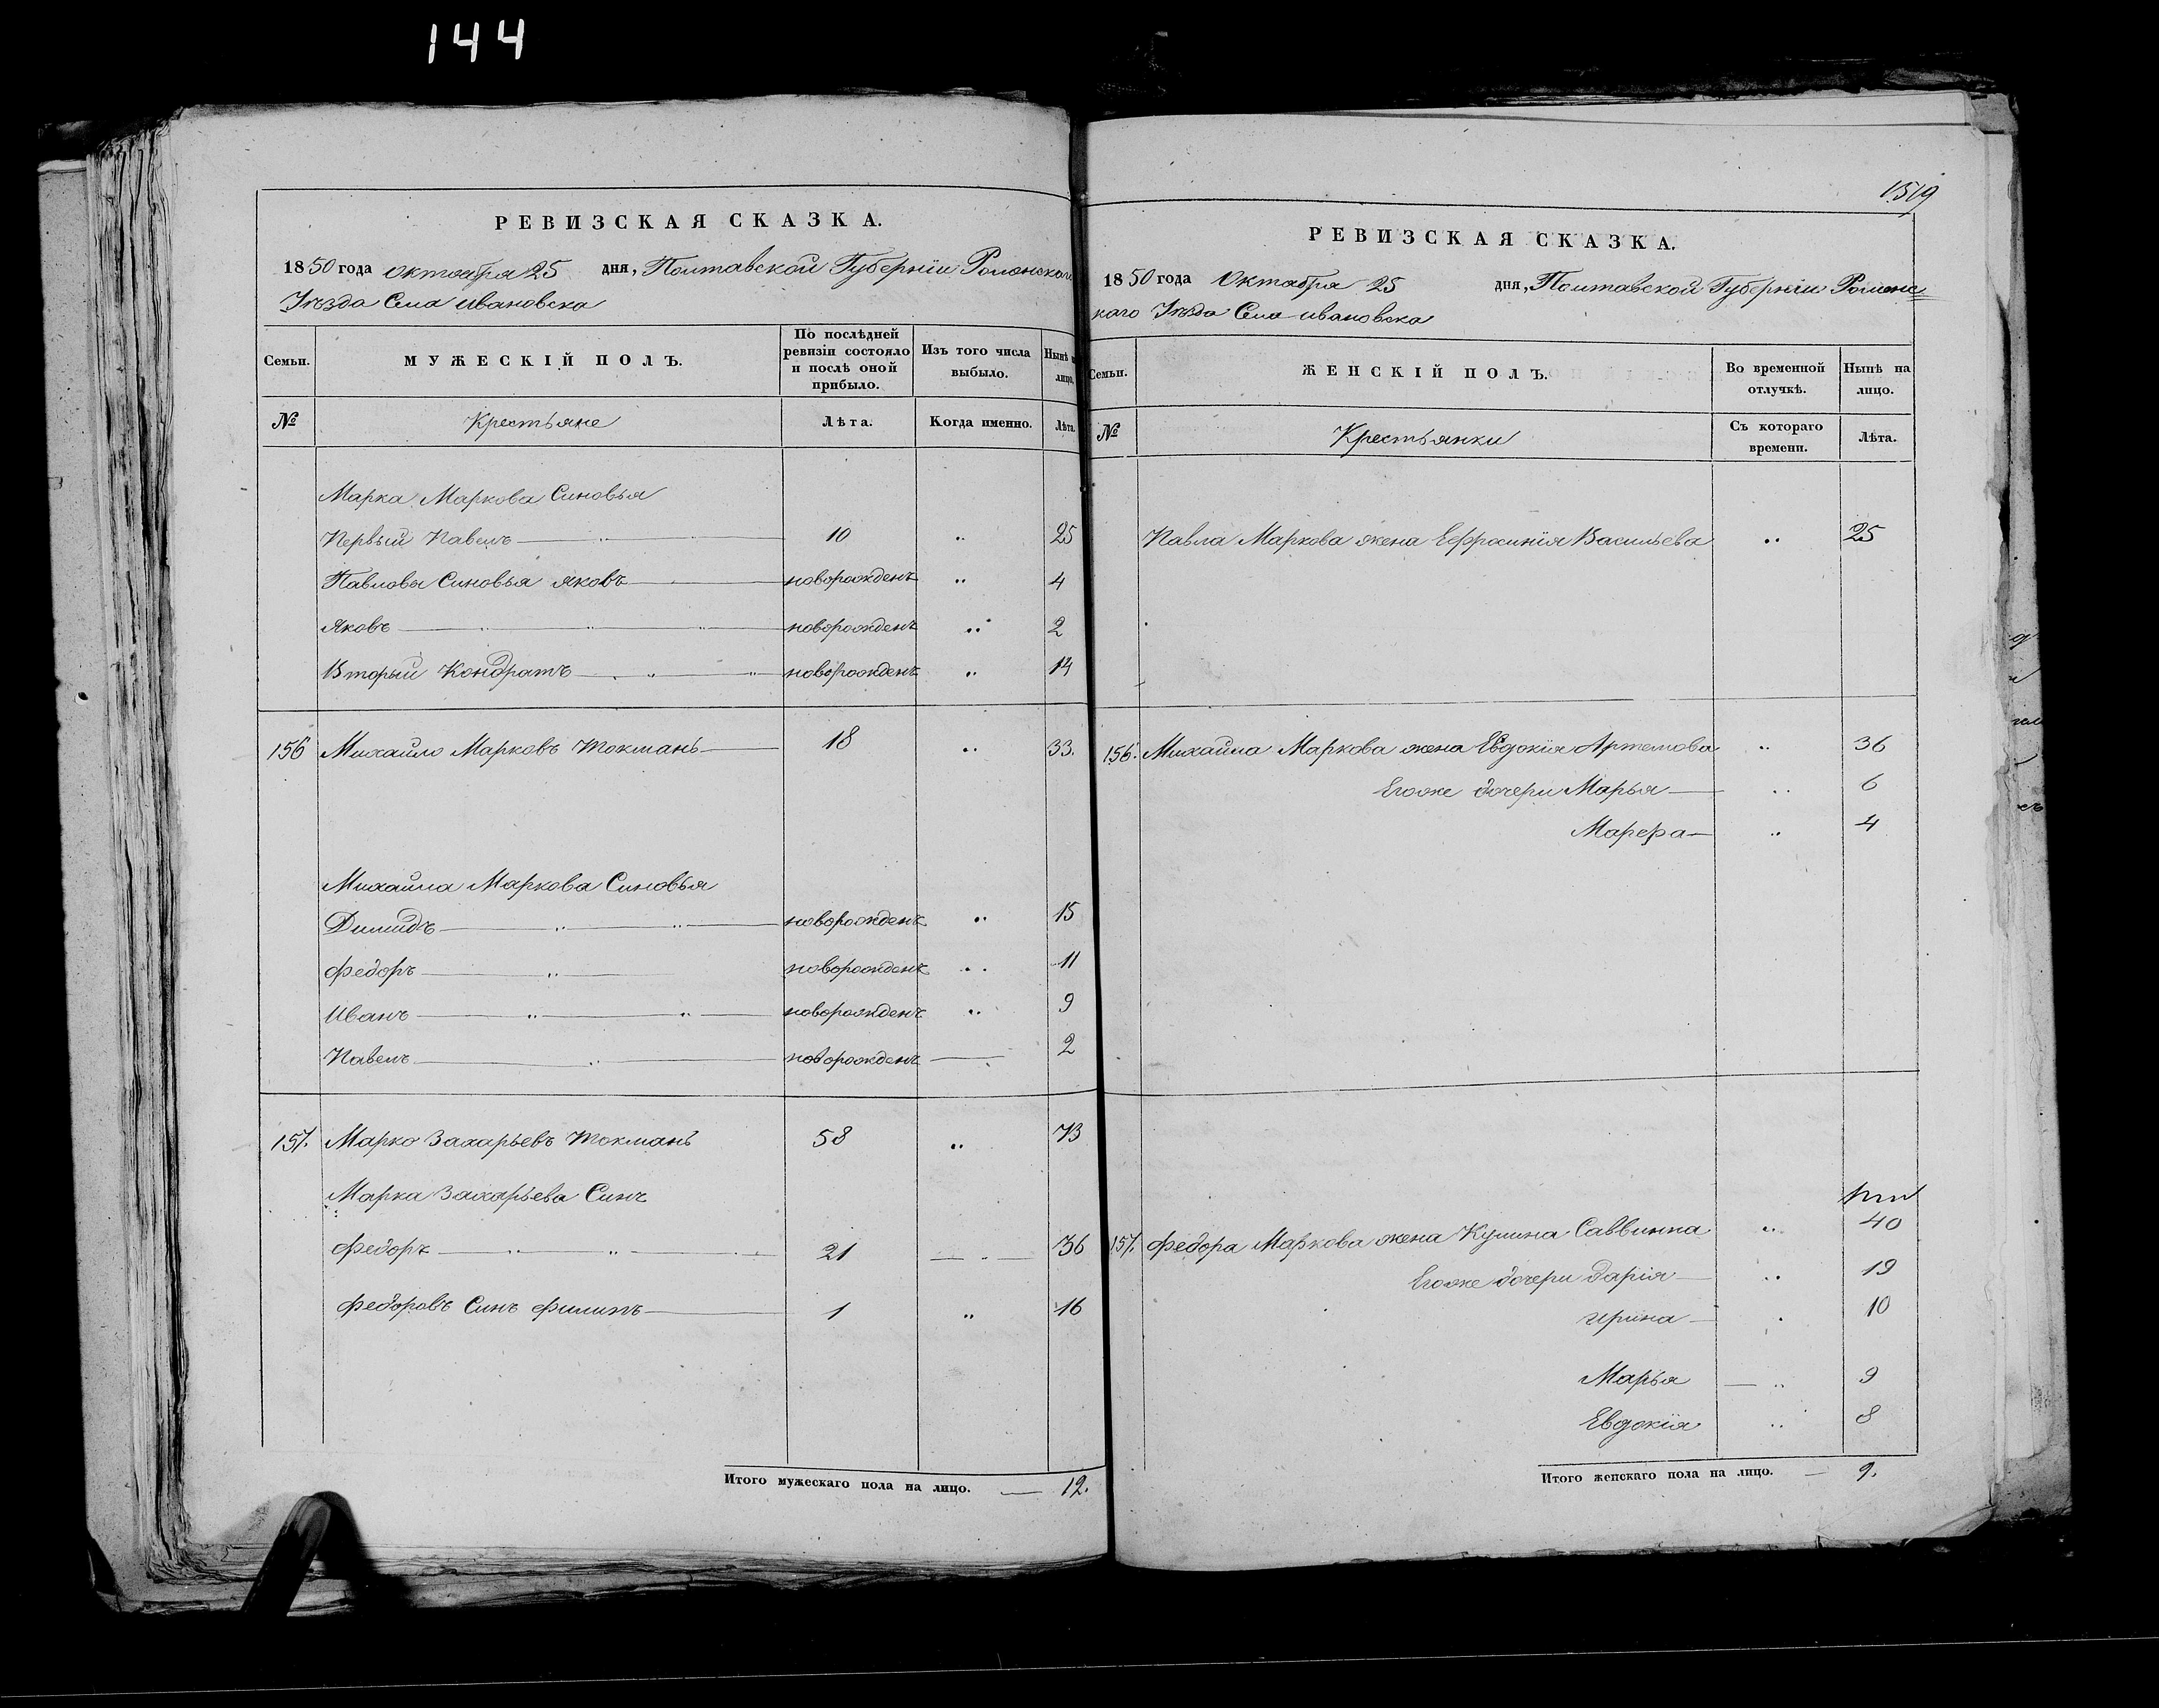 144
РЕВИЗСКАЯ СКАЗКА.
1850 года октоября 25 дня, Полтавской Губерніи Роменскаго
Уѣзда Села Ивановска
Семьи.
МУЖЕСКІЙ ПОЛЪ.
По послѣдней ревизіи состояло и послѣ оной прибыло.
Изъ того числа выбыло.
Нынѣ на лицо.
№
Крестьяне
Лѣта.
Когда именно.
Лѣта.
Марка Маркова Синовья
Первый Павелъ 10 25
Павловы Синовья Яковъ новорожденъ 4
Яковъ новорожденъ 2
Вторый Кондратъ новорожденъ 14
156 Михайло Марковъ Токмань 18 33.
Михайла Маркова Синовья
Димидъ новорожденъ 15
Федоръ новорожденъ 11
Иванъ новорожденъ 9
Павелъ новорожденъ 2
157. Марко Захарьевъ Токмань 58 73
Марка Захарьева Синъ
Федоръ 21 36
Федоровъ Синъ Филипъ 1 16
Итого мужескаго пола на лицо. 12.
РЕВИЗСКАЯ СКАЗКА.
1850 года Октября 25 дня, Полтавской Губерніи Роменс=
каго Уѣзда Села Ивановска
Семьи.
ЖЕНСКІЙ ПОЛЪ.
Во временной отлучкѣ.
Нынѣ на лицо.
№
Крестьянки
Съ котораго времени.
Лѣта.
Павла Маркова жена Ефросинія Васильева 25
156. Михайла Маркова жена Евдокія Артемова 36
Егоже дочери Марья 6
Марефа 4
157. Федора Маркова жена Кулина Саввина 40
Егоже дочери Дарія 19
Ирина 10
Марья 9
Евдокія 8
Итого женскаго пола на лицо. 9.